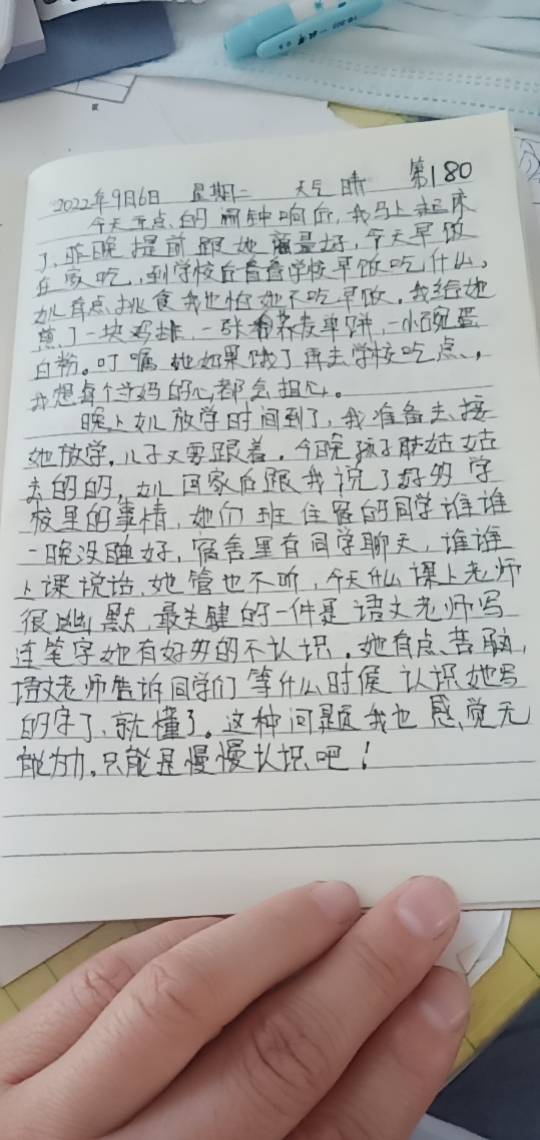 2022年9月6日 星期二 天气 晴 第180
今天五点的闹钟响后,我马上起床
了,昨晚提前跟她商量好,今天早饭
在家吃,到学校后看看学校早饭吃什么,
女儿有点挑食我也怕她不吃早饭。我给她
煎了一块鸡排,一张荞麦单饼,一小碗蛋
白粉。叮嘱她如果饿了再去学校吃点,
我想每个当妈的心都会担心。
晚上女儿放学时间到了,我准备去接
她放学,儿子又要跟着,今晚孩子姑姑
去的的,女儿回家后跟我说了好多学
校里的事情,她们班住宿的同学谁谁
一晚没睡好,宿舍里有同学聊天,谁谁
上课说话,她管也不听,今天什么课上老师
很幽默,最关键的一件是语文老师写
连笔字她有好多的不认识。她有点苦恼,
语文老师告诉同学们等什么时候认识她写
的字了,就懂了。这种问题我也感觉无
能为力,只能是慢慢认识吧!